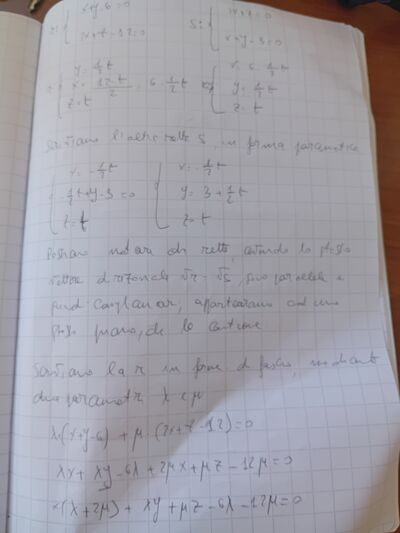 x+y-6=0
r: { 2x+z-12=0 s: { 2x+z=0
x+y-3=0
{ y=1/2 t
x= 12-t/2 = 6-1/2 t
z=t
{ x=6-1/2 t
y=1/2 t
z=t
Scriviamo l'altra retta s, in forma parametrica
{ x=-1/2 t
-1/2 t+y-3=0
z=t
{ x=-1/2 t
y=3+1/2 t
z=t
Possiamo notare le rette, avendo lo stesso
vettore direzionale vr = vs, sono parallele e
quindi complanari, appartengono ad uno
stesso piano, che le contiene
Scriviamo la r in forma di fascio, mediante
due parametri λ e μ
λ(x+y-6) + μ(2x+z-12)=0
λx+λy-6λ+2μx+μz-12μ=0
x(λ+2μ)+λy+μz-6λ-12μ=0